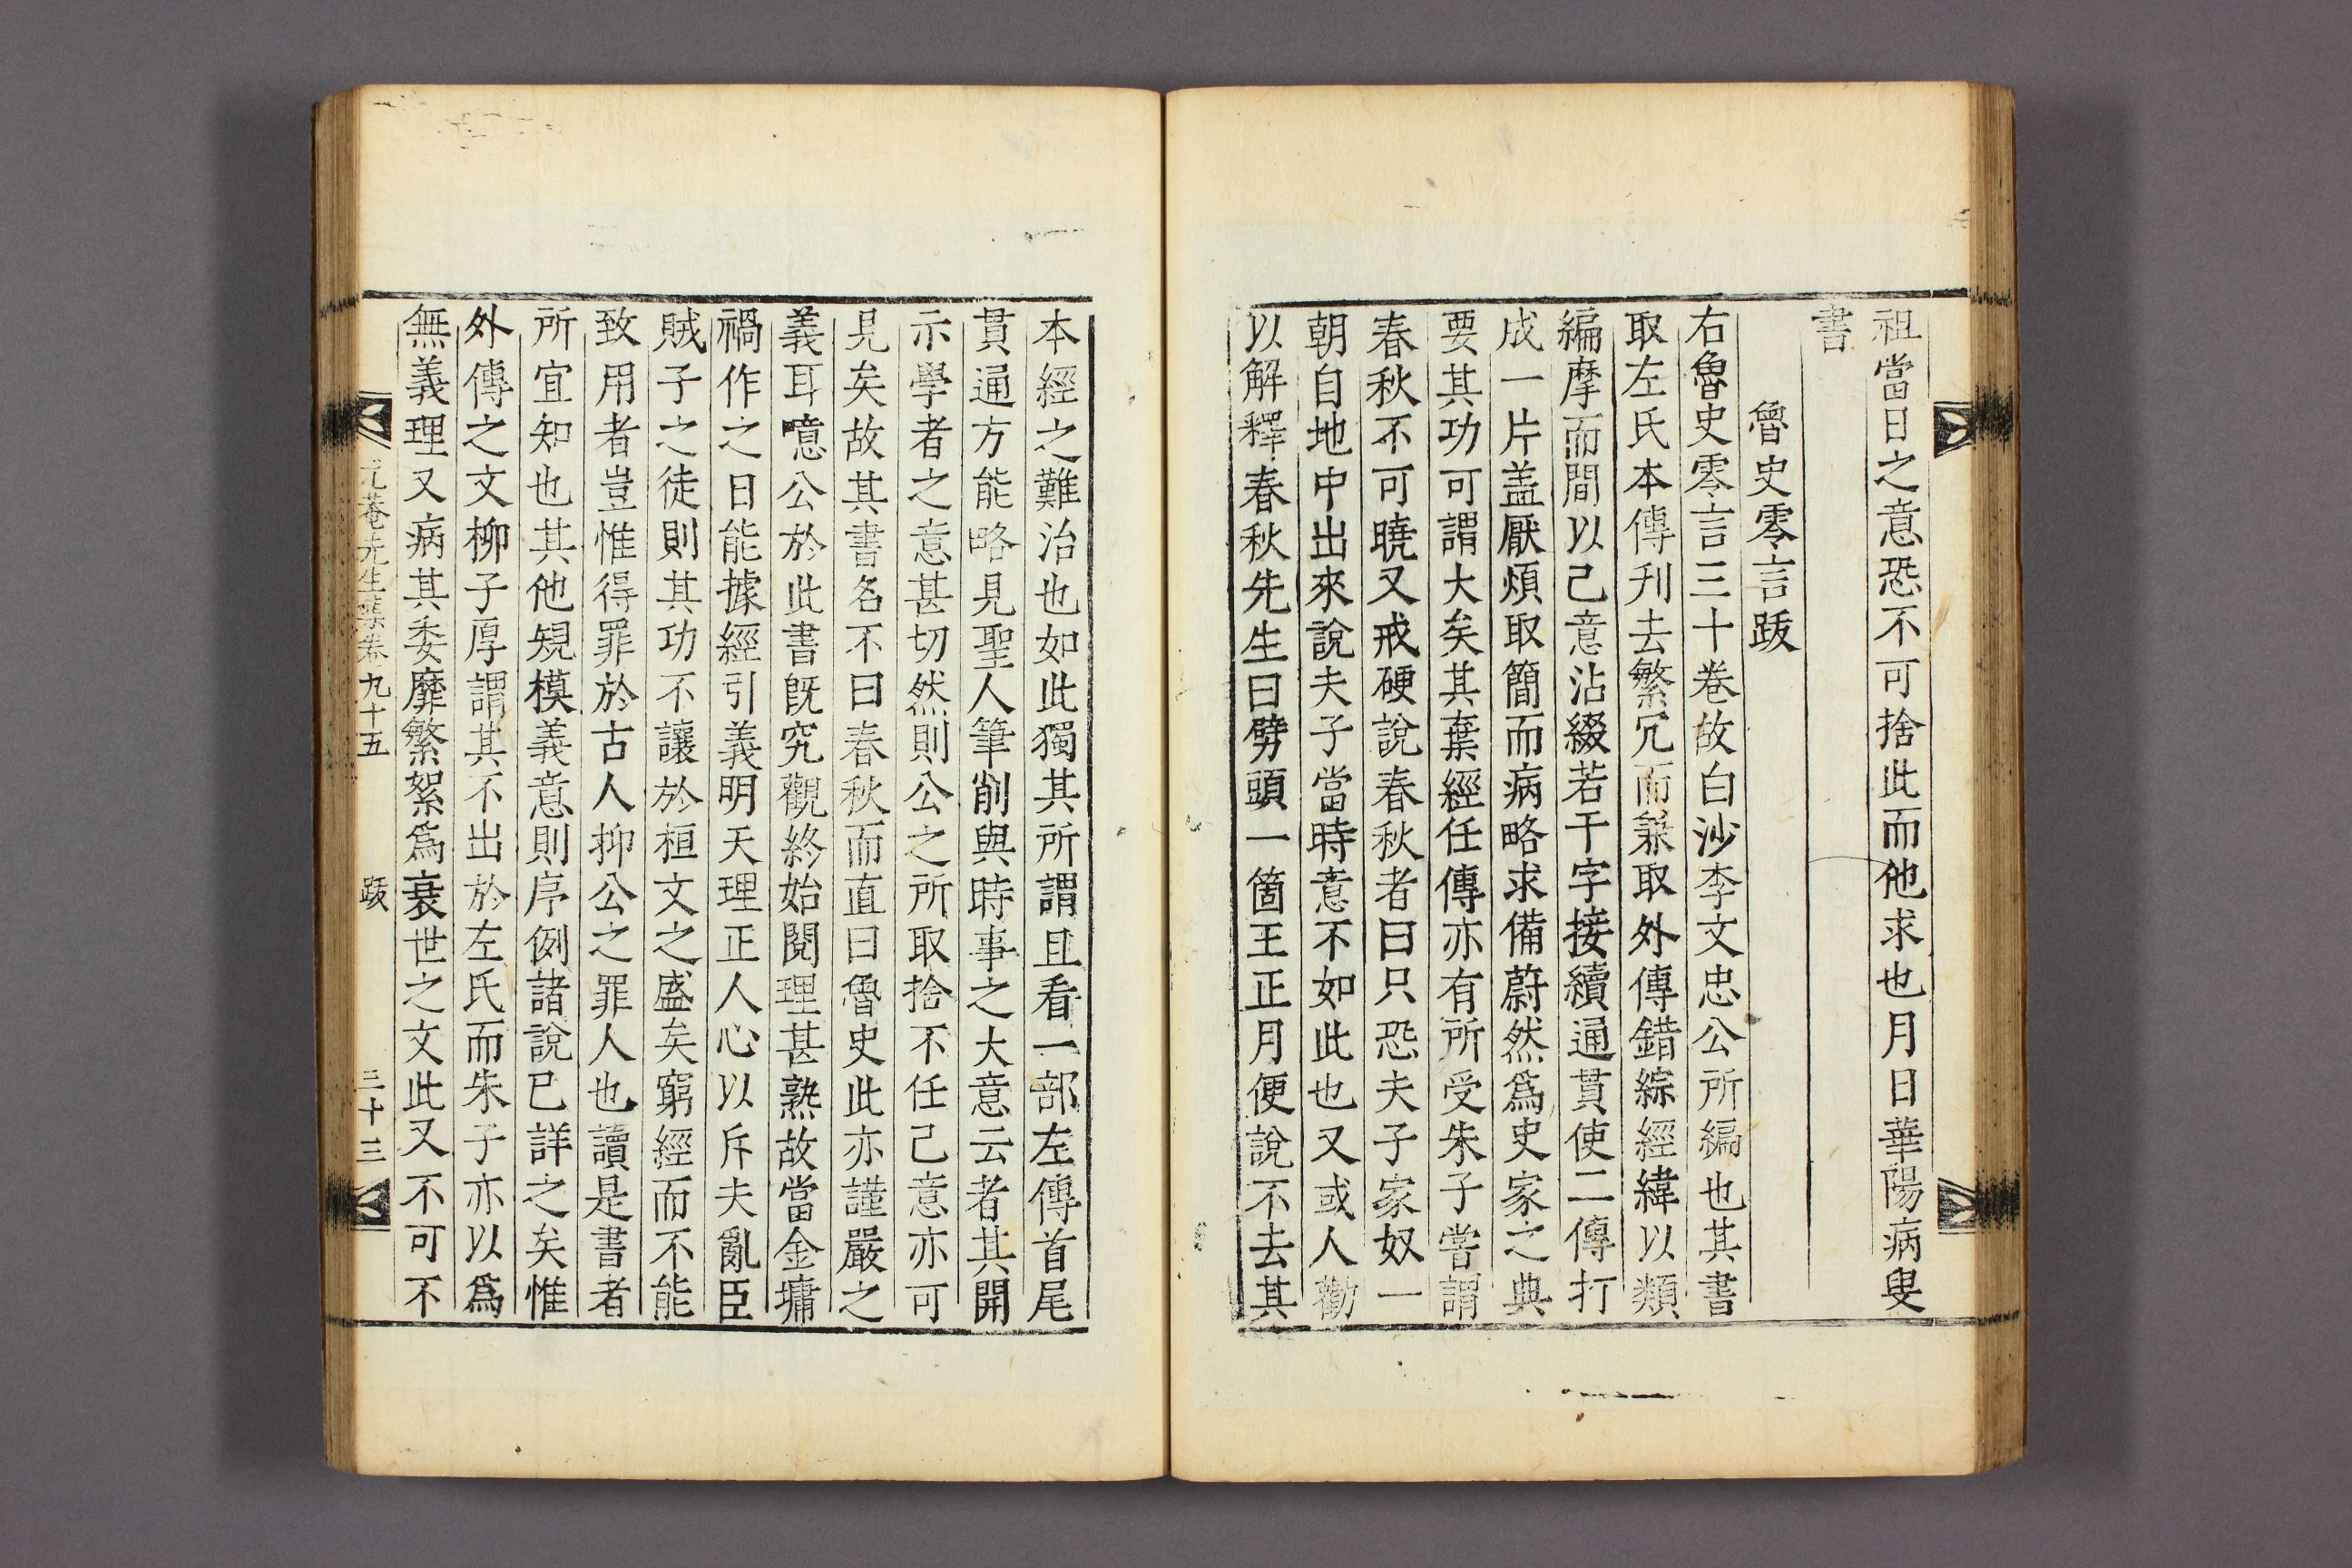 祖當日之意恐不可捨此而他求也月日華陽病叟
書
魯史零言跋
右魯史零言三十卷故白沙李文忠公所編也其書
取左氏本傳刊去繁冗而兼取外傳錯綜經緯以類
編摩而間以己意沾綴若干字接續通貫使二傳打
成一片盖厭煩取簡而病略求備蔚然爲史家之典
要其功可謂大矣其棄經任傳亦有所受朱子嘗謂
春秋不可曉又戒硬說春秋者曰只恐夫子家奴一
朝自地中出來說夫子當時意不如此也又或人勸
以解釋春秋先生曰劈頭一箇王正月便說不去其
本經之難治也如此獨其所謂且看一部左傳首尾
貫通方能略見聖人筆削與時事之大意云者其開
示學者之意甚切然則公之所取捨不任己意亦可
見矣故其書名不曰春秋而直曰魯史此亦謹嚴之
義耳噫公於此書旣究觀終始閱理甚熟故當金墉
禍作之日能據經引義明天理正人心以斥夫亂臣
賊子之徒則其功不讓於桓文之盛矣窮經而不能
致用者豈惟得罪於古人抑公之罪人也讀是書者
所宜知也其他規模義意則序例諸說已詳之矣惟
外傳之文柳子厚謂其不出於左氏而朱子亦以爲
無義理又病其委靡繁絮爲衰世之文此又不可不
尤菴先生集卷九十五 跋 三十三